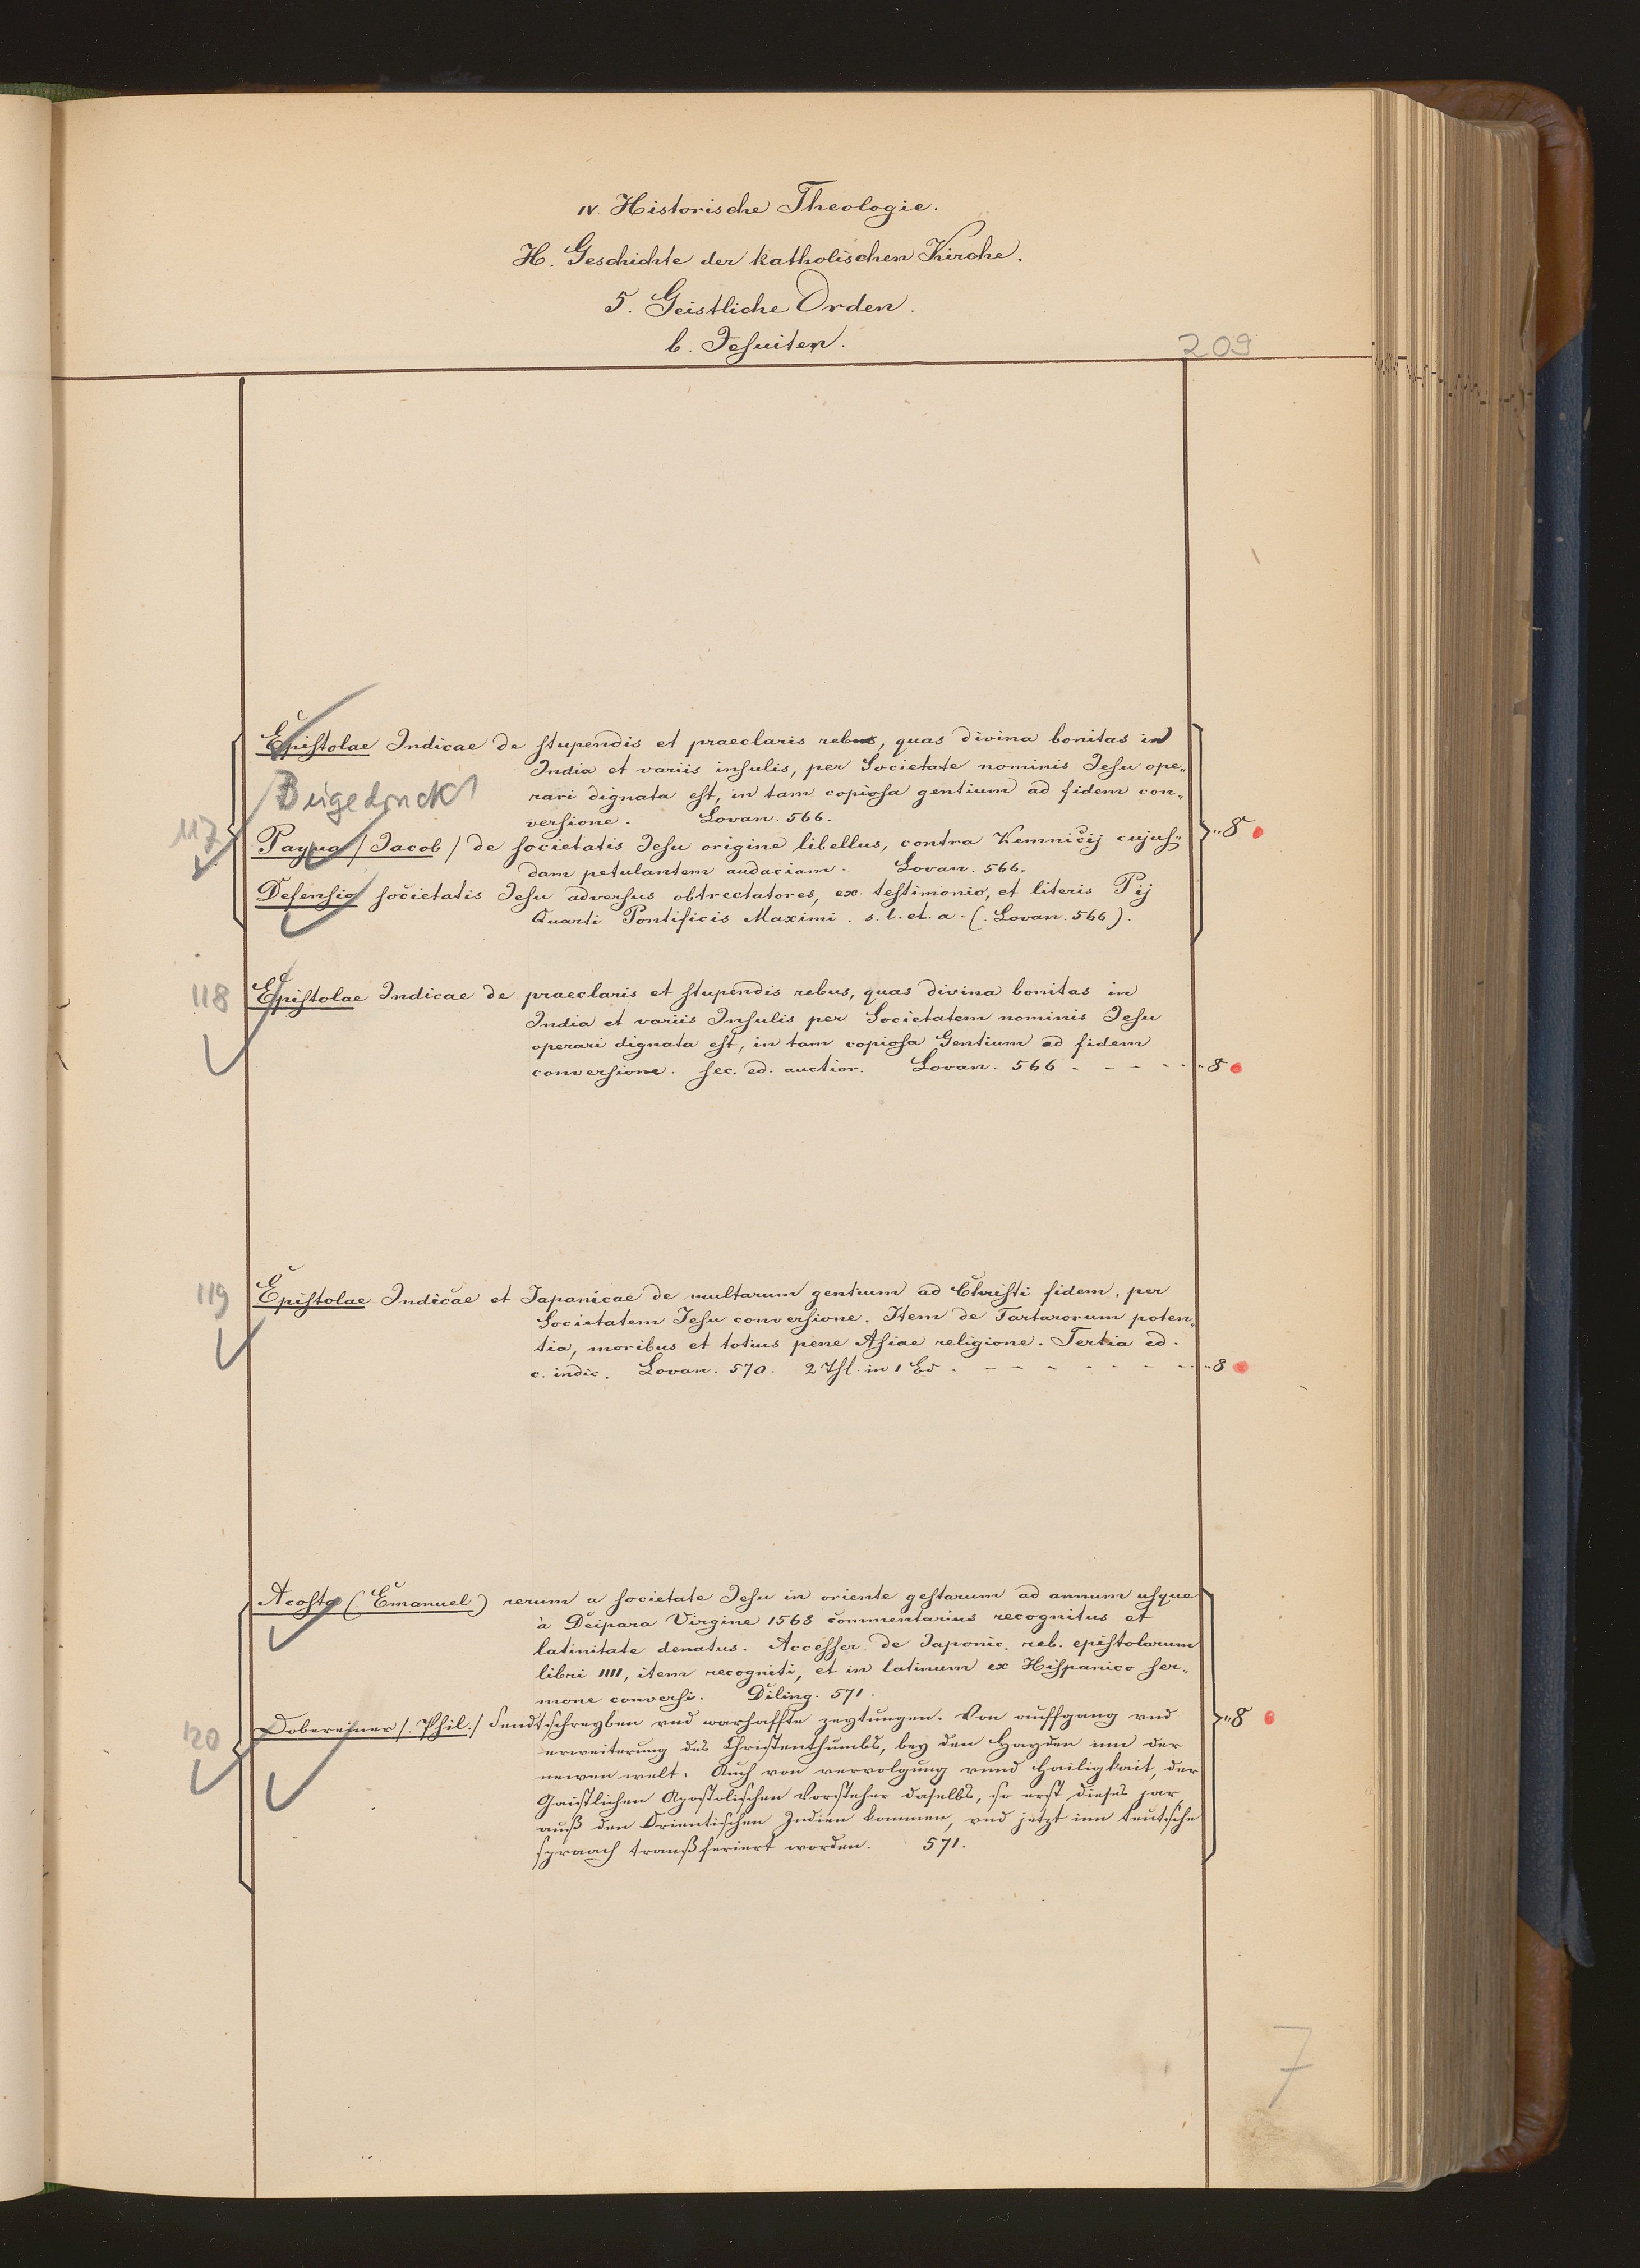 IV. Historische Theologie.
H. Geschichte der katholischen Kirche.
5. Geistliche Orden.
b. Jesuiten.
209
Epistolae Indicae de stupendis et praeclaris rebus, quas divina bonitas in
India et variis insulis, per Societate nominis Jesu ope„
Beigedruckt
rari dignata est, in tam copiosa gentium ad fidem con„
versione. Lovan. 566.
117
Payua /Jacob/ de societatis Jesu origine libellus, contra Kemnicij cujus„
„8
dam petulantem audaciam. Lovan. 566.
Defensio societatis Jesu adversus obtrectatores, ex testimonio, et literis Pij
Quarti Pontificis Maximi. s. l. et. a. (. Lovan. 566).
118
Epistolae Indicae de praeclaris et stupendis rebus, quas divina bonitas in
India et variis Insulis per Societatem nominis Jesu
operari dignata est, in tam copiosa Gentium ad fidem
conversione. sec. ed. auctior. Lovan. 566 - - - - - „8
119
Epistolae Indicae et Japanicae de multarum gentium ad Christi fidem, per
Societatem Jesu conversione. Item de Tartarorum poten„
tia, moribus et totius pene Asiae religione. Tertia ed.
c. indic. Lovan. 570. 2 Thl. in 1 Bd. - - - - - - - - „8
Acosta (. Emanuel) rerum a societate Jesu in oriente gestarum ad annum usque
à Deipara Virgine 1568 commentarius recognitus et
latinitate donatus. Accesser. de Japonic. reb. epistolarum
libri IIII, item recogniti, et in latinum ex Hispanico ser„
mone conversi. Diling. 571.
120
Dobereiner /. Phil./ Sendtschreyben vnd warhaffte zeytungen. Von auffgang vnd
„8
erweiterung des Christenthumbs, bey den Hayden inn der
newen welt. Auch von vervolgung vnnd Hailigkait, der
Gaistlichen Apostolischen Vorsteher daselbs, so erst dieses jar,
auß den Orientischen Indien kommen, vnd jetzt inn teutsche
spraach transferiert worden. 571.
7